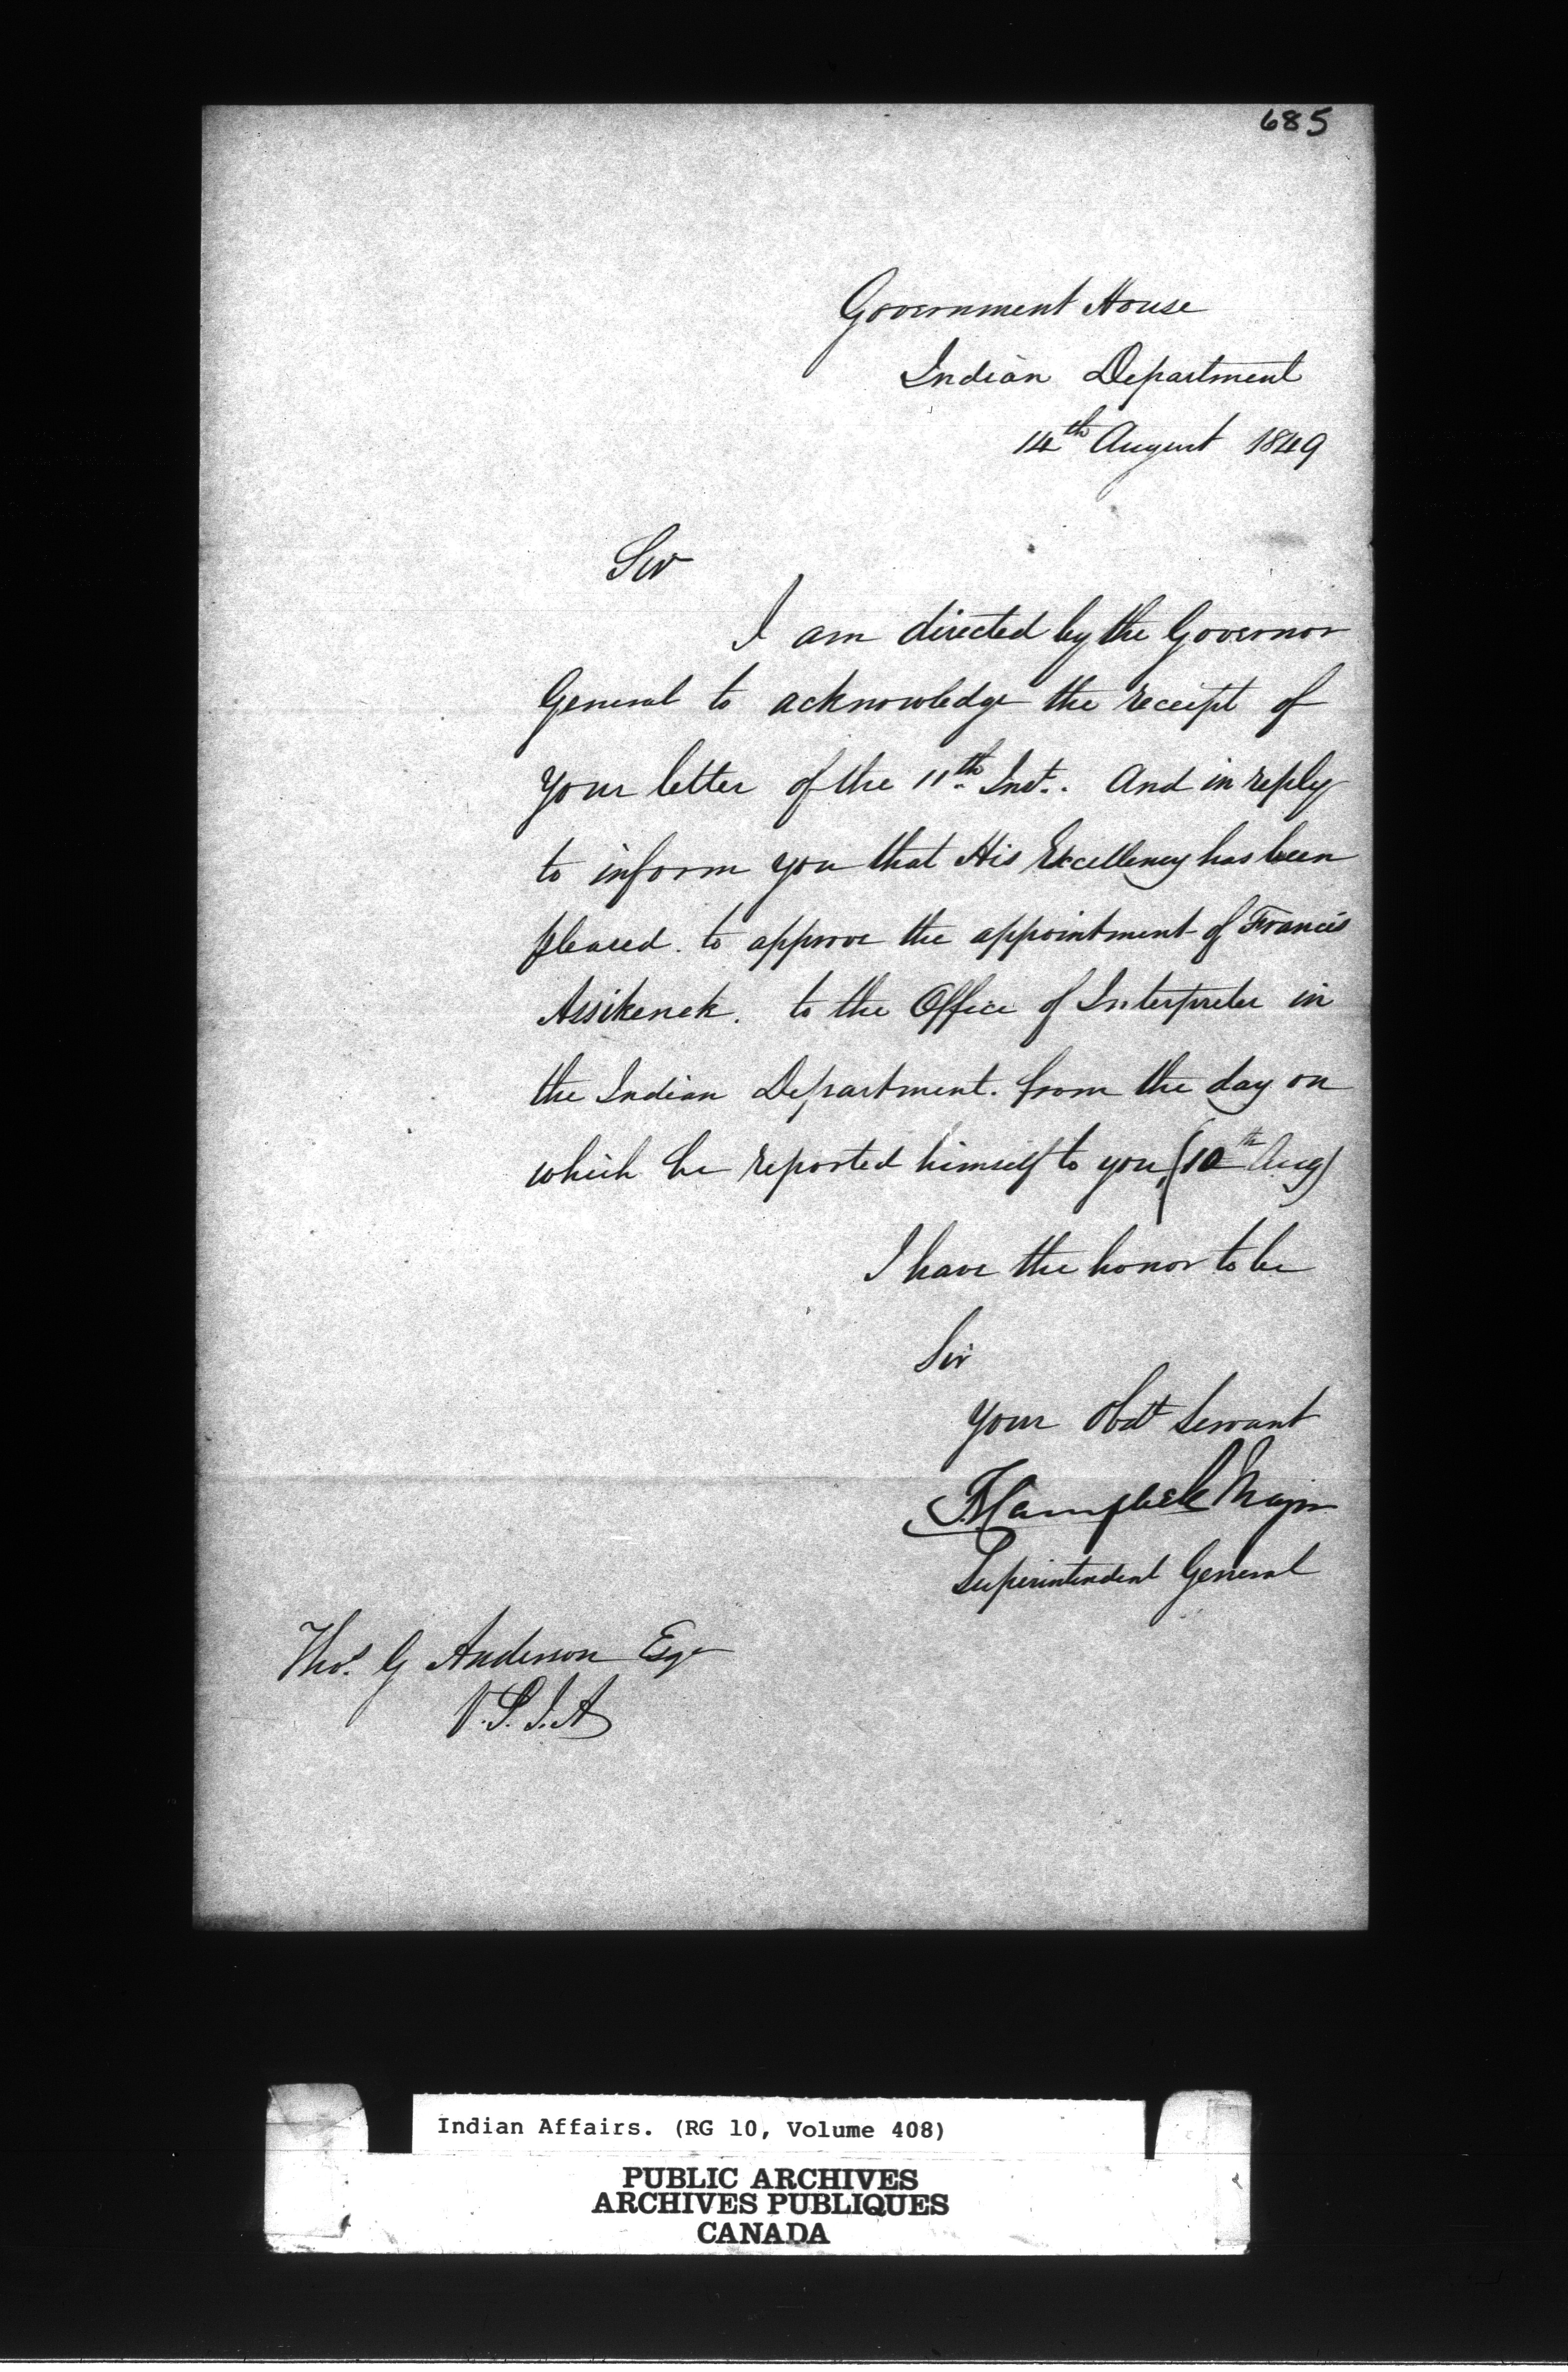 685
Government House
Indian Department
14th August 1849
Sir
I am directed by the Governor
General to acknowledge the receipt of
your letter of the 11th Inst. And in reply
to inform you that His Excellency has been
pleased to approve the appointment of Francis
Assikenek. to the Office of Interpreter in
the Indian Department. from the day on
which he reported himself to you, (10th Aug)
I have the honor to be
Sir
Your Obdt Servant
TCampbell Major
Superintendent General
Thos. G Anderson Esqr
V.S.I.A
Indian Affairs. (RG 10, Volume 408)
PUBLIC ARCHIVES
ARCHIVES PUBLIQUES
CANADA